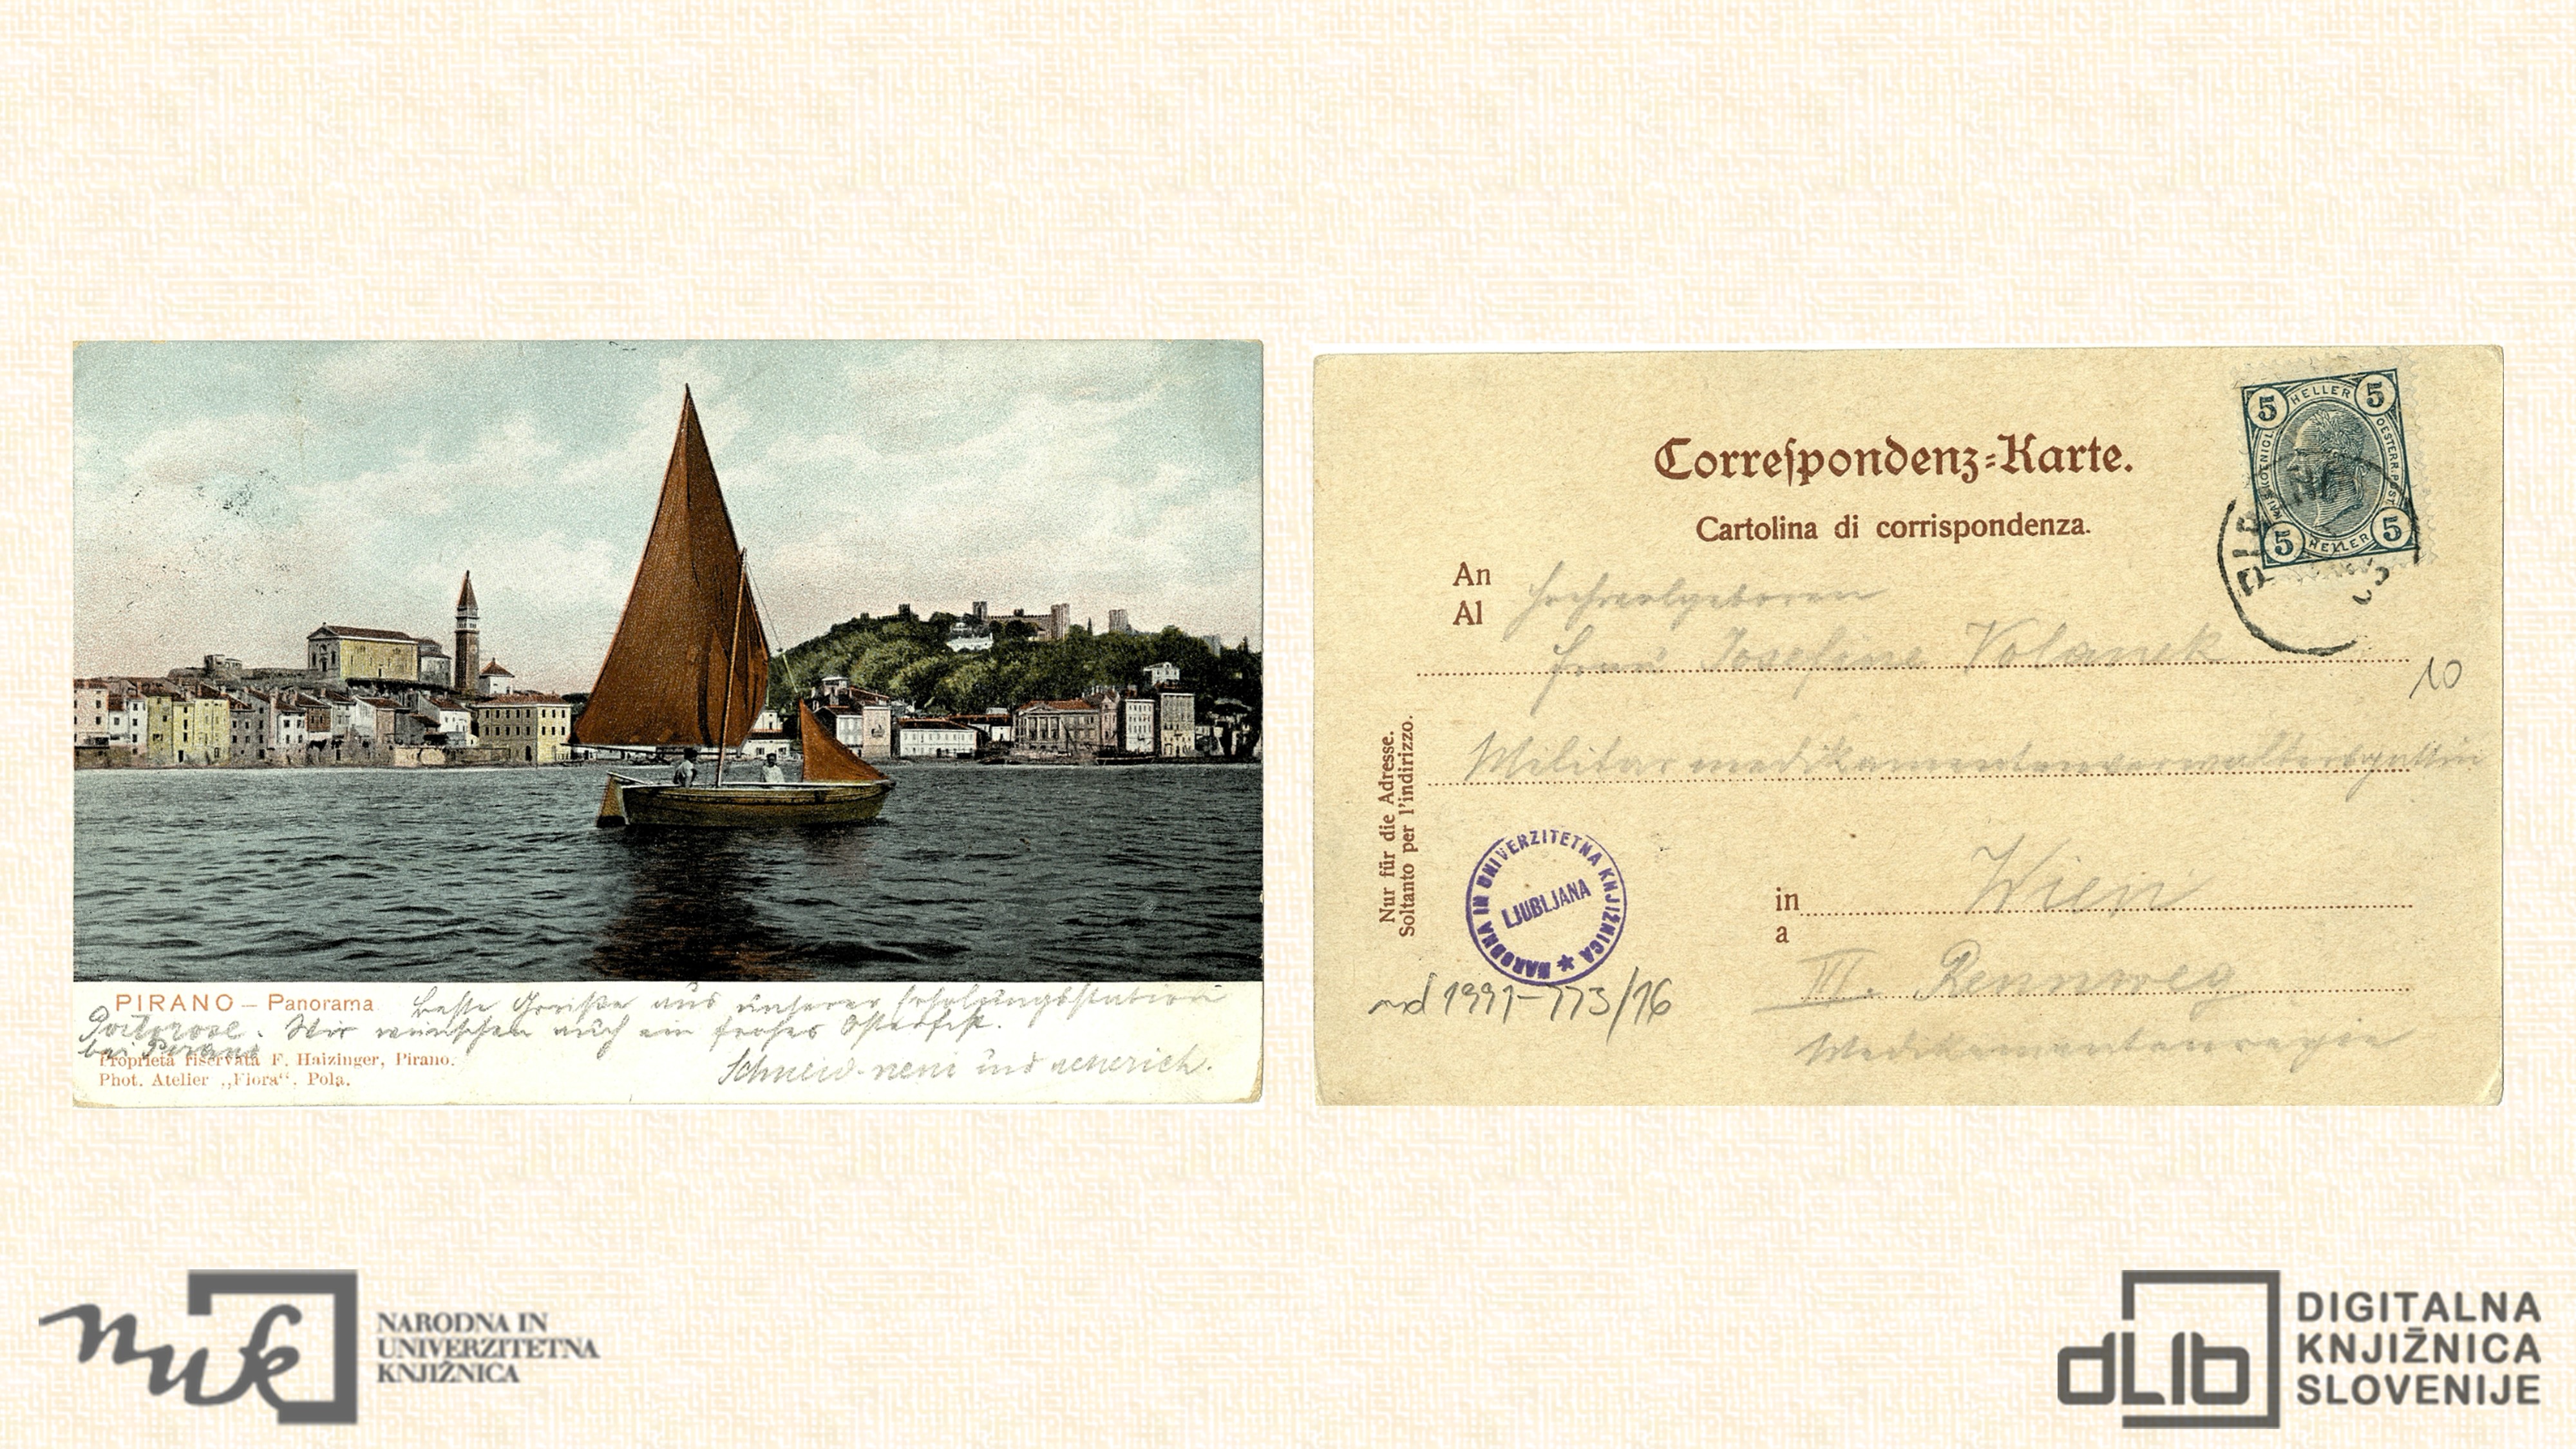 PIRANO – Panorama. Beste Grüße aus unserer Erholungsstation
Portorose. Wir wünschen auch ein frohes Osterfest.
bei Pirano
Proprietà riservata F. Haizinger, Pirano.
Phot. Atelier „Flora“, Pola.
und
Correspondenz-Karte.
Cartolina di corrispondenza.
5 HELLER 5
KAIS. KOENIGL. OESTERR. POST
5 HELLER 5
PIR
An
Al
Hochwolgeboren
Frau Josefine Volanek
10
Militärmedikamentenverwaltersgattin
Nur für die Adresse.
Soltanto per l'indirizzo.
NARODNA IN UNIVERZITETNA KNJIŽNICA
LJUBLJANA
in Wien
a
III. Rennweg
Medikamentenregie
1991-773/16
nuk
NARODNA IN
UNIVERZITETNA
KNJIŽNICA
dLib
DIGITALNA
KNJIŽNICA
SLOVENIJE